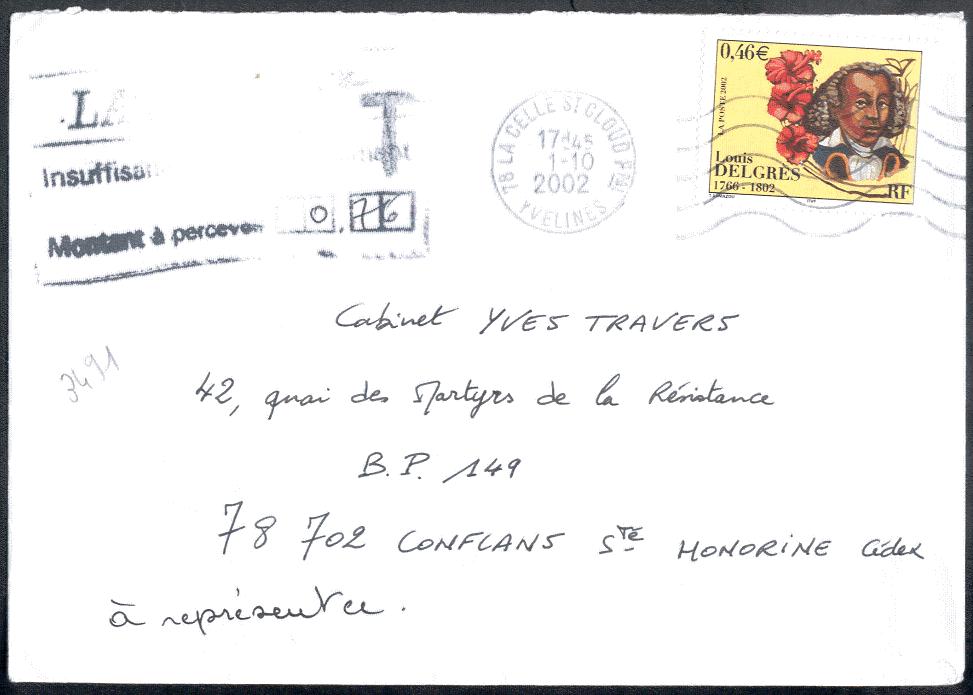 LA
T
Insuffisa
Montant à percevoir 0,76
78 LA CELLE ST CLOUD PAL
17H45
1-10
2002
YVELINES
0,46€
LA POSTE 2002
Louis
DELGRÈS
1766 - 1802
RF
Cabinet YVES TRAVERS
42, quai des Martyrs de la Résistance
B.P. 149
78 702 CONFLANS STE HONORINE Cédex
à représenter.
3491